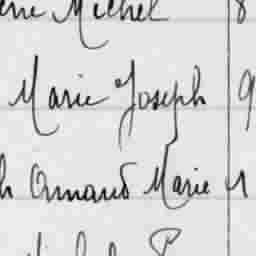 Michel 8
Marie Joseph 9
h Armand Marie 1